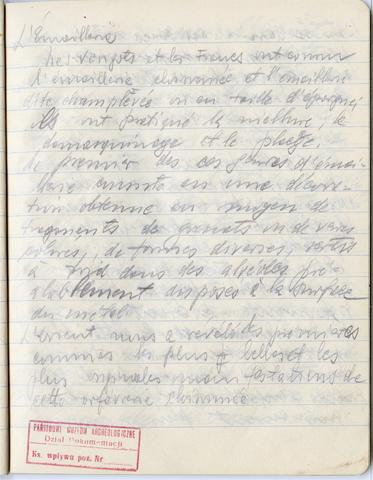 L'Emaillerie
Les Vizigots et les Francs ont connu
l'émaillerie cloisonnée et l'émaillerie
dite champlevée ou en taille d'épargne.
Ils ont pratiqué la niellure, le
damasquinage et le placage.
Le premier des ces genres d'émail-
lerie consiste en une décora-
tion obtenue au moyen de
fragments de grenats ou de verres
colorés, de formes diverses, sertis
à froid dans des alvéoles pré-
alablement disposés à la surface
du métal.
L'orient nous a révélé les premières
comme les plus belles et les
plus manifestations de
cette orfèvrerie cloisonnée
PAŃSTWOWE MUZEUM ARCHEOLOGICZNE
Dział Dokumentacji
Ks. wpływu poz. Nr